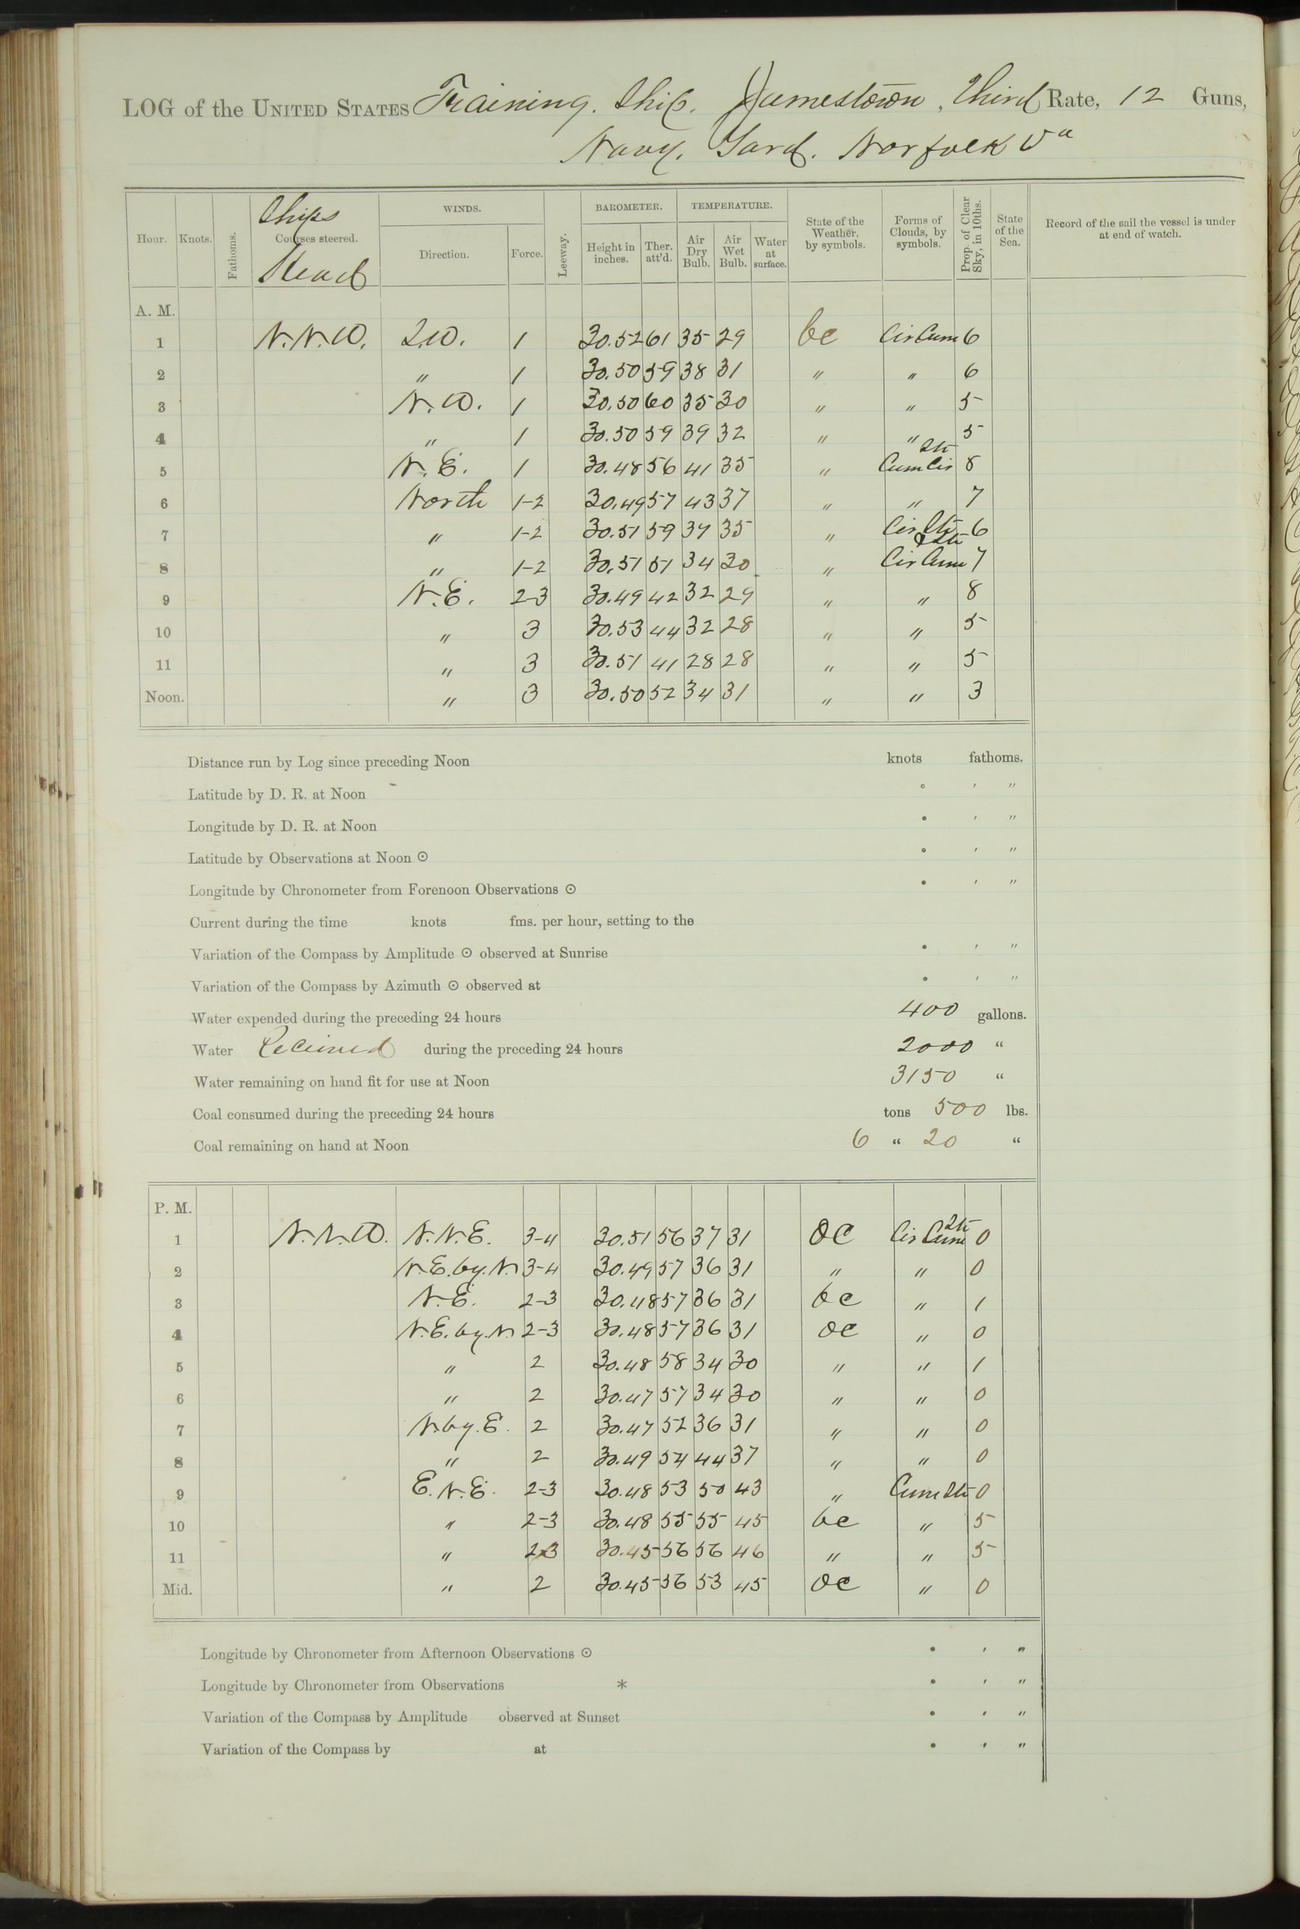 LOG of the UNITED STATES Training Ship. Jamestown, Third Rate, 12 Guns,
Navy Yard. Norfolk Va
Hour. Knots. Fathoms. Ships Courses steered. Head WINDS. Direction. Force. Leeway. BAROMETER. Height in inches. Ther. att'd. TEMPERATURE. Air Dry Bulb. Air Wet Bulb. Water at surface. State of the Weather, by symbols. Forms of Clouds, by symbols. Prop. of Clear Sky, in 10ths. State of the Sea. Record of the sail the vessel is under at end of watch.
A. M.
1 N.N.W. S.W. 1 30.52 61 35 29 bc Cir Cum 6
2 " 1 30.50 59 38 31 " " 6
3 N.W. 1 30.50 60 35 30 " " 5
4 " 1 30.50 59 39 32 " " 5
5 N.E. 1 30.48 56 41 35 " Cum Cir Str 8
6 North 1-2 30.49 57 43 37 " " 7
7 " 1-2 30.51 59 37 35 " Cir Str 6
8 " 1-2 30.51 51 34 30 " Cir Cum Str 7
9 N.E. 2-3 30.49 42 32 29 " " 8
10 " 3 30.53 44 32 28 " " 5
11 " 3 30.51 41 28 28 " " 5
Noon. " 3 30.50 52 34 31 " " 3
Distance run by Log since preceding Noon knots fathoms.
Latitude by D. R. at Noon ° ′ ″
Longitude by D. R. at Noon ° ′ ″
Latitude by Observations at Noon ⊙ ° ′ ″
Longitude by Chronometer from Forenoon Observations ⊙ ° ′ ″
Current during the time knots fms. per hour, setting to the
Variation of the Compass by Amplitude ⊙ observed at Sunrise ° ′ ″
Variation of the Compass by Azimuth ⊙ observed at ° ′ ″
Water expended during the preceding 24 hours 400 gallons.
Water Received during the preceding 24 hours 2000 "
Water remaining on hand fit for use at Noon 3150 "
Coal consumed during the preceding 24 hours tons 500 lbs.
Coal remaining on hand at Noon 6 " 20 "
P. M.
1 N.N.W. N.N.E. 3-4 30.51 56 37 31 OC Cir Cum Str 0
2 N.E. by. N. 3-4 30.49 57 36 31 " " 0
3 N.E. 2-3 30.48 57 36 31 bc " 1
4 N.E. by. N 2-3 30.48 57 36 31 oc " 0
5 " 2 30.48 58 34 30 " " 1
6 " 2 30.47 57 34 30 " " 0
7 N. by. E. 2 30.47 52 36 31 " " 0
8 " 2 30.49 54 44 37 " " 0
9 E.N.E. 2-3 30.48 53 50 43 " Cum Str 0
10 " 2-3 30.48 55 55 45 bc " 5
11 " 2-3 30.45 56 56 46 " " 5
Mid. " 2 30.45 56 53 45 OC " 0
Longitude by Chronometer from Afternoon Observations ⊙ ° ′ ″
Longitude by Chronometer from Observations * ° ′ ″
Variation of the Compass by Amplitude observed at Sunset ° ′ ″
Variation of the Compass by at ° ′ ″